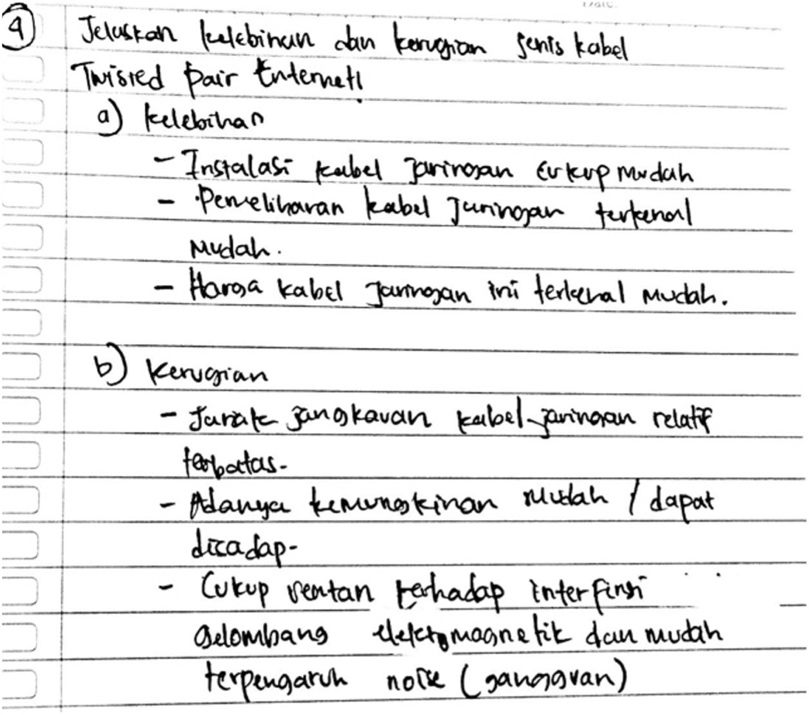 4 Jelaskan kelebihan dan kerugian jenis kabel
Twisted pair Enternet!
a) kelebihan
- Instalasi kabel jaringan cukup mudah
- Pemeliharan kabel Jaringan terkenal
mudah.
- Harga kabel jaringan ini terkenal mudah.
b) kerugian
- Jarak jangkauan kabel jaringan relatif
terbatas-
- Adanya kemungkinan mudah / dapat
dicadap-
- Cukup rentan terhadap interfinsi
gelombang elektromagnetik dan mudah
terpengaruh noise (gangguan)